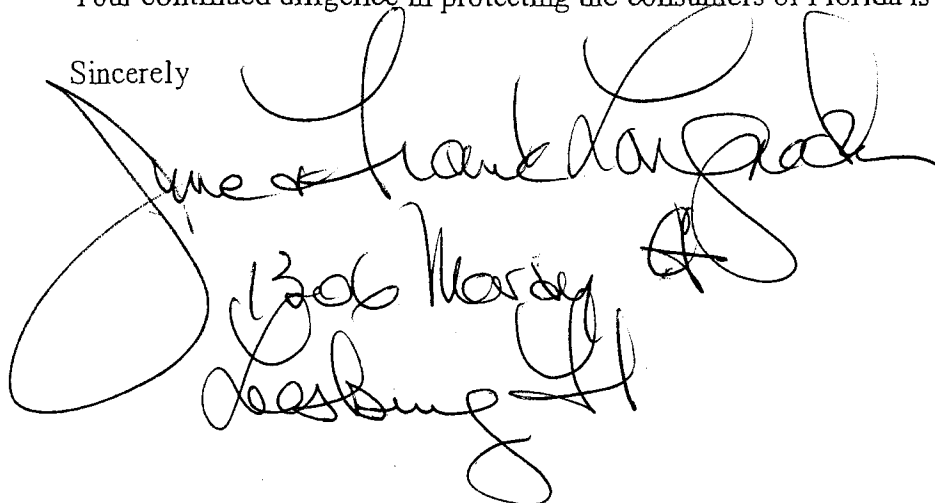 Your continued diligence in protecting the consumers of Florida is
Sincerely
June & Frank
1306
Leesburg Fl